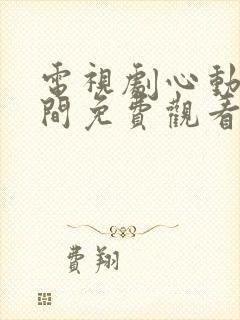 電視劇心動
間免費觀看
費翔